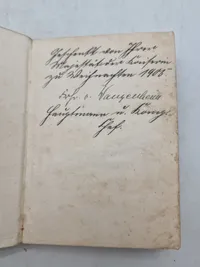 Geschenkt von Ihrer
Majestät der Kaiserin
zu Weihnachten 1905
v. Wangenheim
Hauptmann u. Komp.
Chef.